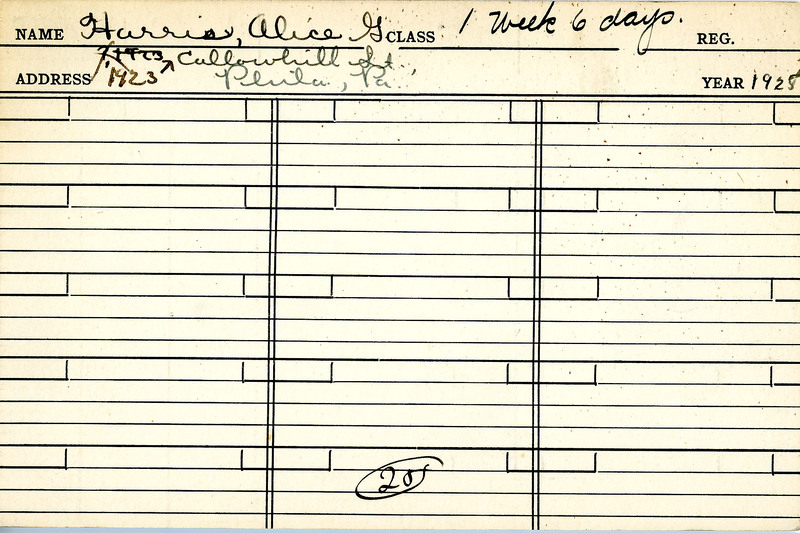 NAME Harris, Alice G CLASS 1 Week 6 days. REG.
1923 Callowhill St.,
ADDRESS 1923 Phila, Pa. YEAR 1925
20